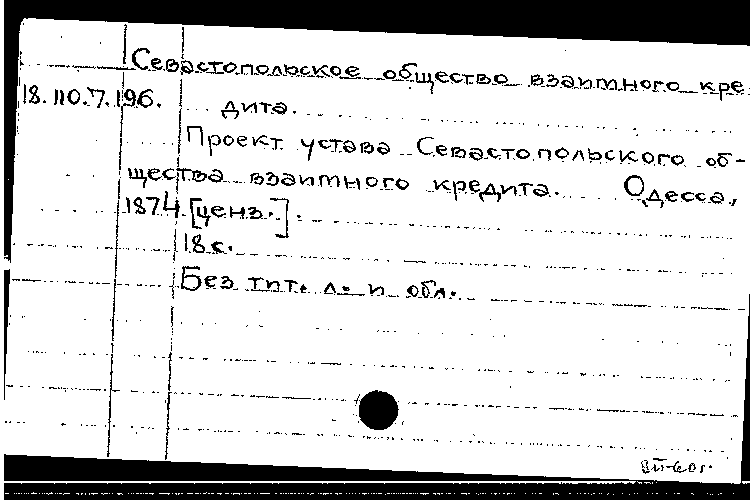 Севастопольское общество взаимного кре-
18.110.7.196. дита.
Проект устава Севастопольского об-
щества взаимного кредита. Одесса,
1874 [ценз.].
18 с.
Без тит. л. и обл.